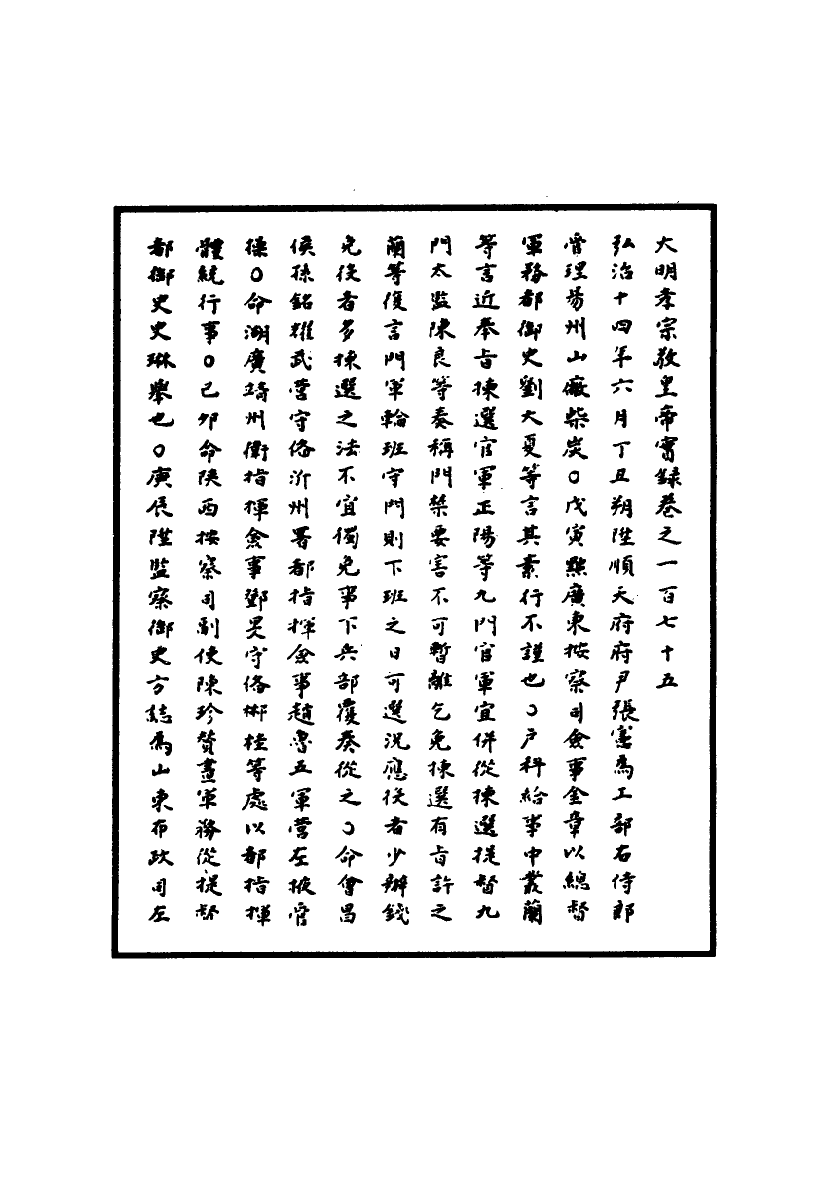 大明孝宗敬皇帝實録卷之一百七十五
弘治十四年六月丁丑朔陞順天府府尹張憲為工部右侍郎
管理易州山廠柴炭○戊寅黜廣東按察司僉事金章以總督
軍務都御史劉大夏等言其素行不謹也○戶科給事中叢蘭
等言近奉旨揀選官軍正陽等九門官軍宜併從揀選提督九
門太監陳良等奏稱門禁要害不可暫離乞免揀選有旨許之
蘭等復言門軍輪班守門則下班之日可選況應役者少辦錢
免役者多揀選之法不宜獨免事下兵部覆奏從之○命會昌
侯孫銘耀武營守俻沂州署都指揮僉事趙 五軍營左掖管
操○命湖廣 州衛指揮僉事鄧 守俻郴桂等處以都指揮
體統行事○己卯命陝西按察司副使陳珍贊畫軍務從提督
都御史史琳舉也○庚辰陞監察御史方誌為山東布政司左